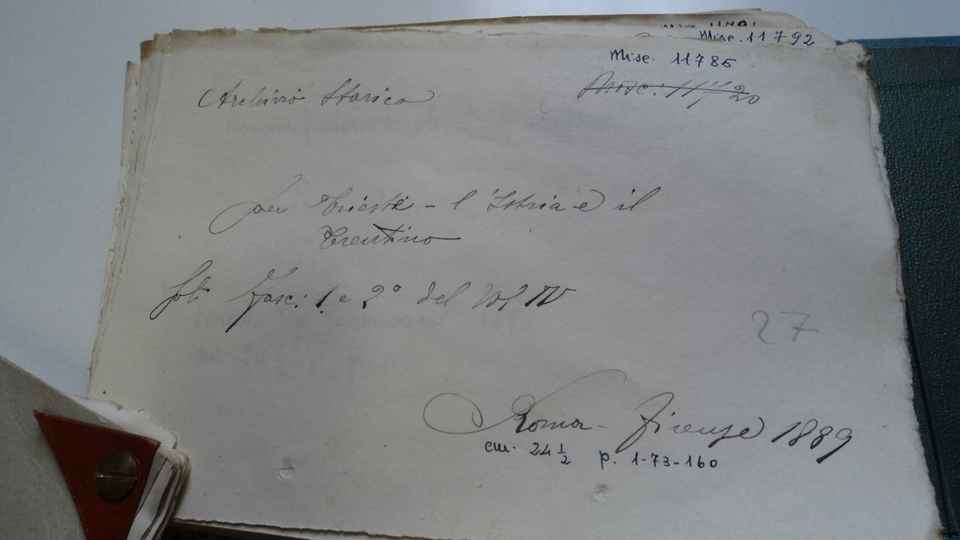 Misc. 11792
Misc. 11786
Misc: 11/20
Archivio Storico
per Trieste - l'Istria e il
Trentino
fol. Fasc: 1. e 2° del Vol IV
27
Roma - Firenze 1889
cm. 24 1/2 p. 1-73-160